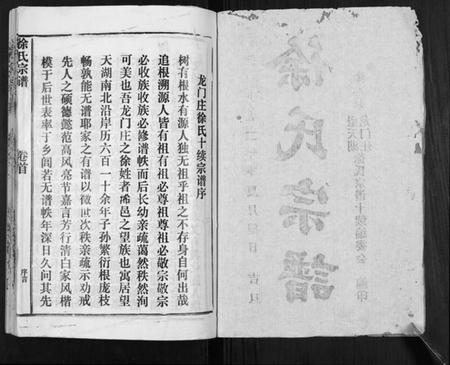 龙门庄徐氏十续宗谱序
树有根水有源人独无祖乎祖之不存身自何出哉
追根溯源人皆有祖有祖必尊祖尊祖必敬宗敬宗
必收族收族必修谱帙而后长幼亲疏蔼然秩然洵
可美也吾龙门庄之徐姓者邑之望族也寓居望
天湖南北沿岸历六百一十余年子孙繁衍根庞枝
畅孰能无谱耶家之有谱以微世次秩亲疏示劝戒
先人之硕德懿范高风亮节嘉言芳行清白家风楷
模于后世表率于乡闾若无谱帙年深日久问其先
徐氏宗谱
卷首
序言
徐氏宗譜